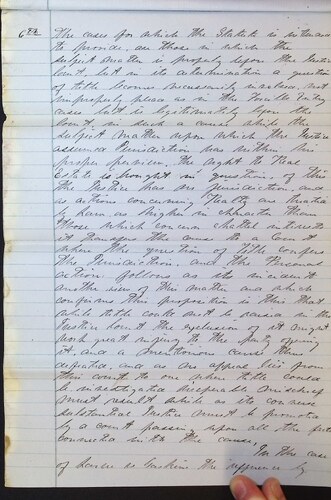 6th The cases for which the Statute is intended
to provide, are those in which the
subject matter is properly before the Justice
Court, but in its determination a question
of title becomes necessarily involved, not
improperly places as in the
case, but is legitimately upon the
Court, in such a cause while the
subject matter upon which the Justice
assumed Jurisdiction was within his
proper purview, the right to Real
Estate is brought in question, of this
the Justice has no Jurisdiction, and
as actions concerning Realty are
as higher in character than
those which concern chattel interests
it transfers the cause to a Court
where the question of Title confers
the Jurisdiction, and the Personal
action follows as its incident
another view of this matter and which
confirms this proposition is this that
while title could not be raised in the
Justice Court the exclusion of it might
work great injury to the party offering
it, and a meritorious cause thus
defeated, and as an appeal lies from
this court to one where title could
be investigated irreparable mischief
must result while as its converse
substantial Justice must be promoted
by a court passing upon all the facts
connected with the cause.
In the case
of the difference by